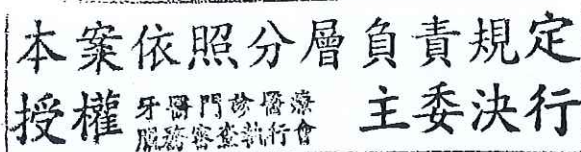 本案依照分層負責規定
授權 牙醫門診醫療
服務審查執行會 主委決行